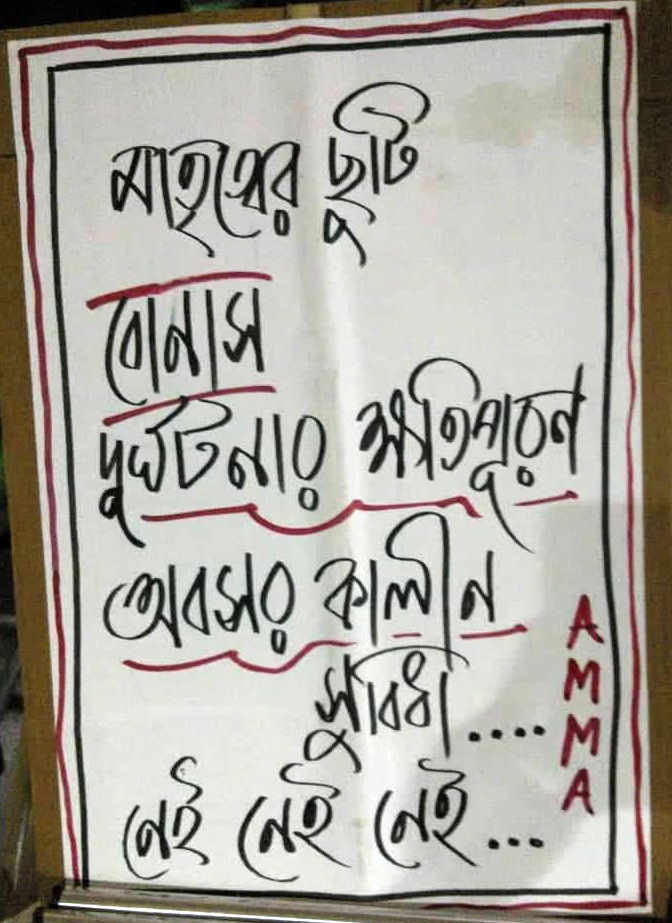 মাতৃত্বের ছুটি
বোনাস
দুর্ঘটনার ক্ষতিপূরণ
অবসর কালীন
সুবিধা....
নেই নেই নেই...
AMMA